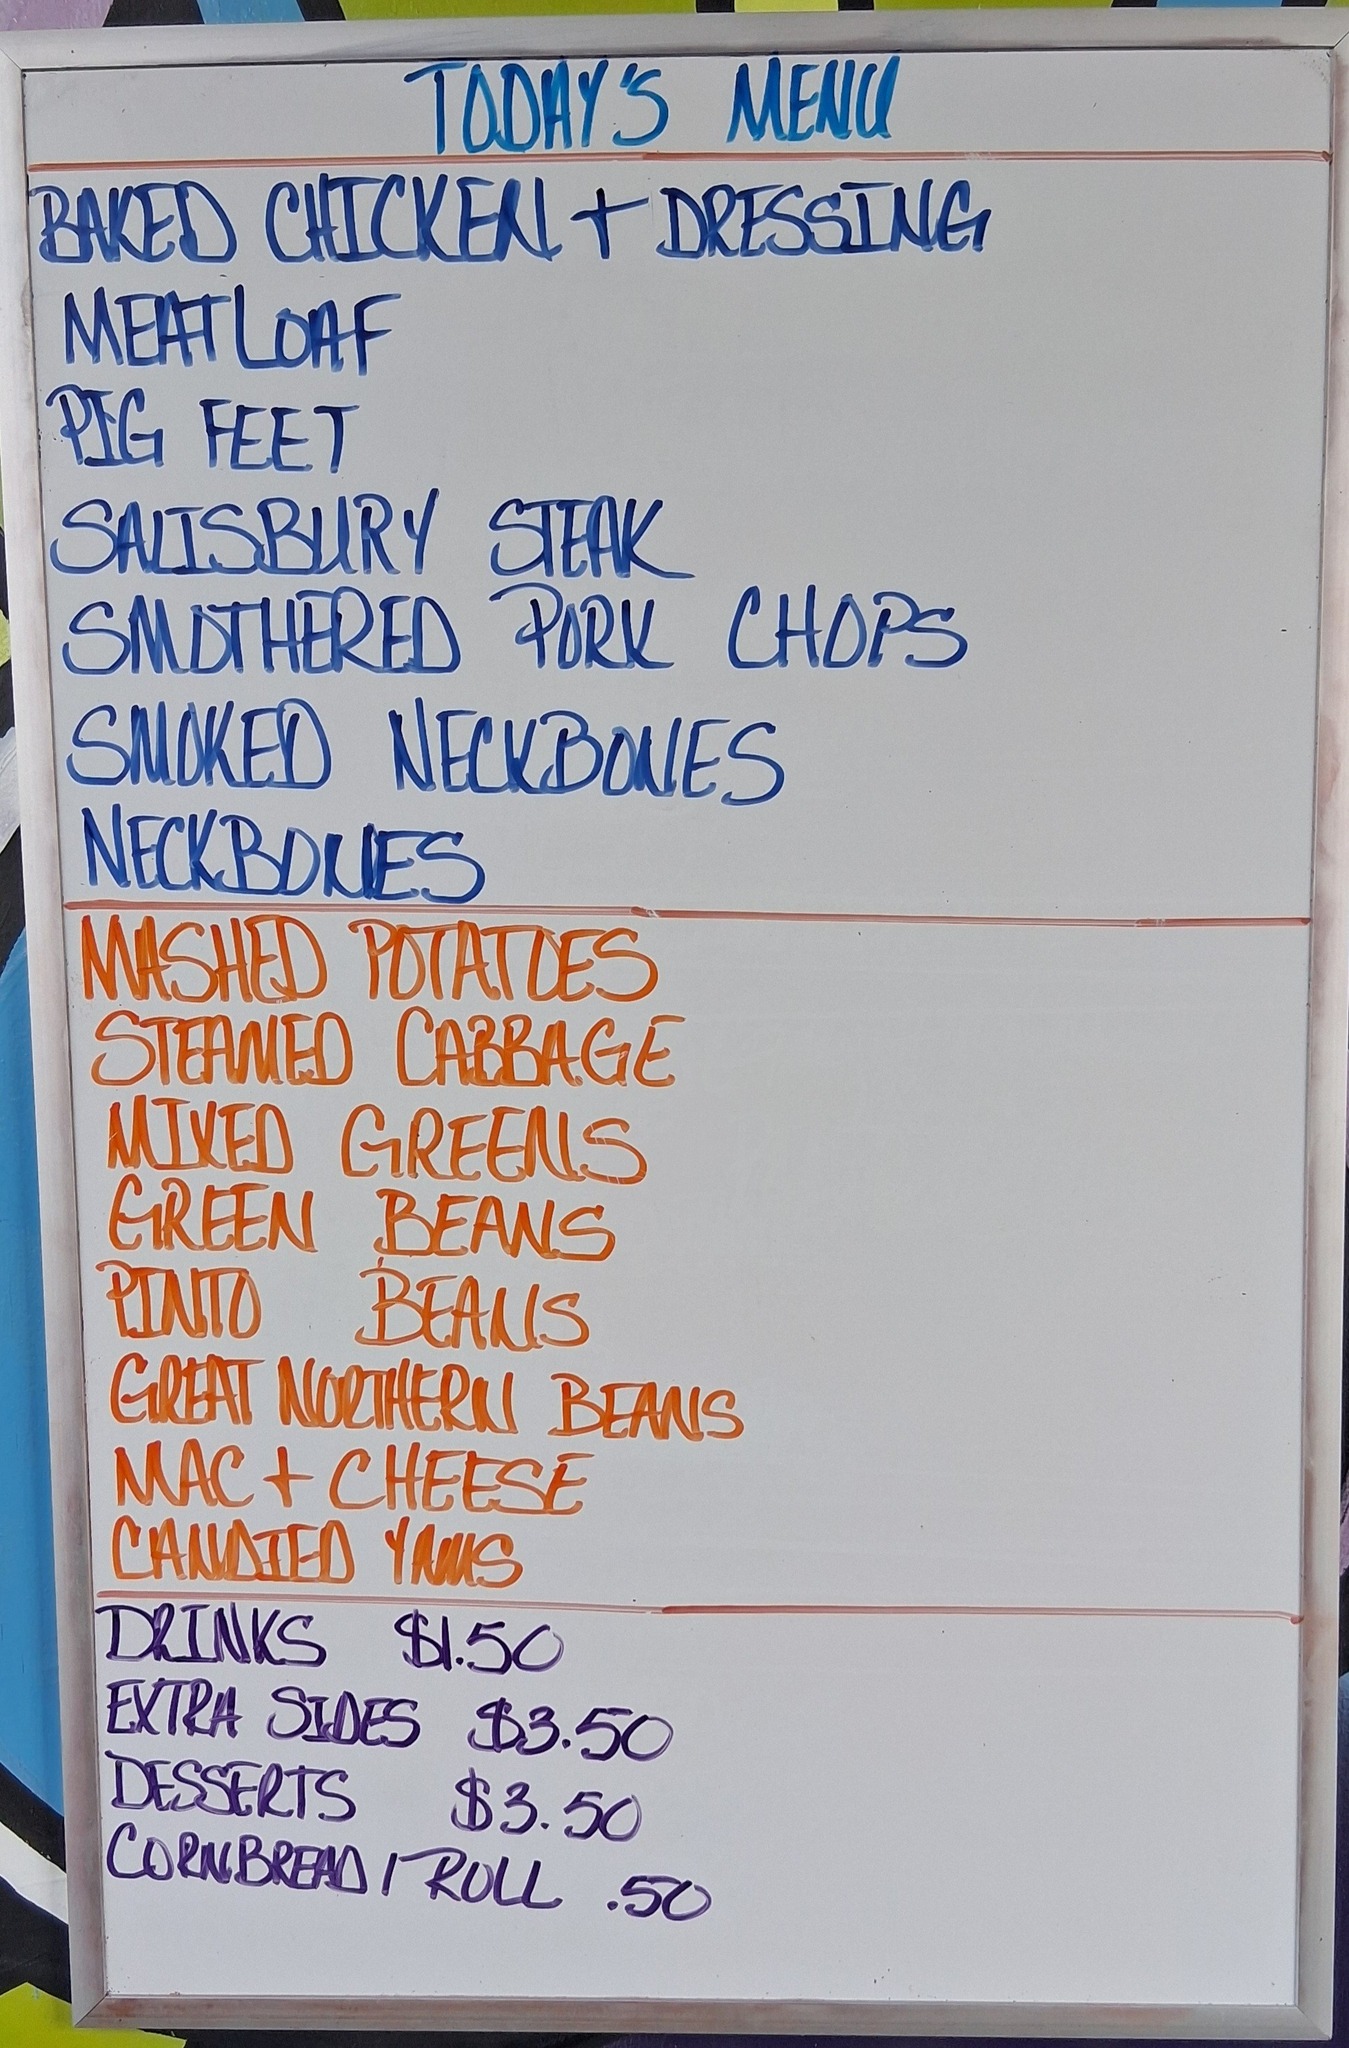 TODAY'S MENU
BAKED CHICKEN + DRESSING
MEATLOAF
PIG FEET
SALISBURY STEAK
SMOTHERED PORK CHOPS
SMOKED NECKBONES
NECKBONES
MASHED POTATOES
STEAMED CABBAGE
MIXED GREENS
GREEN BEANS
PINTO BEANS
GREAT NORTHERN BEANS
MAC + CHEESE
CANDIED YAMS
DRINKS $1.50
EXTRA SIDES $3.50
DESSERTS $3.50
CORNBREAD / ROLL .50